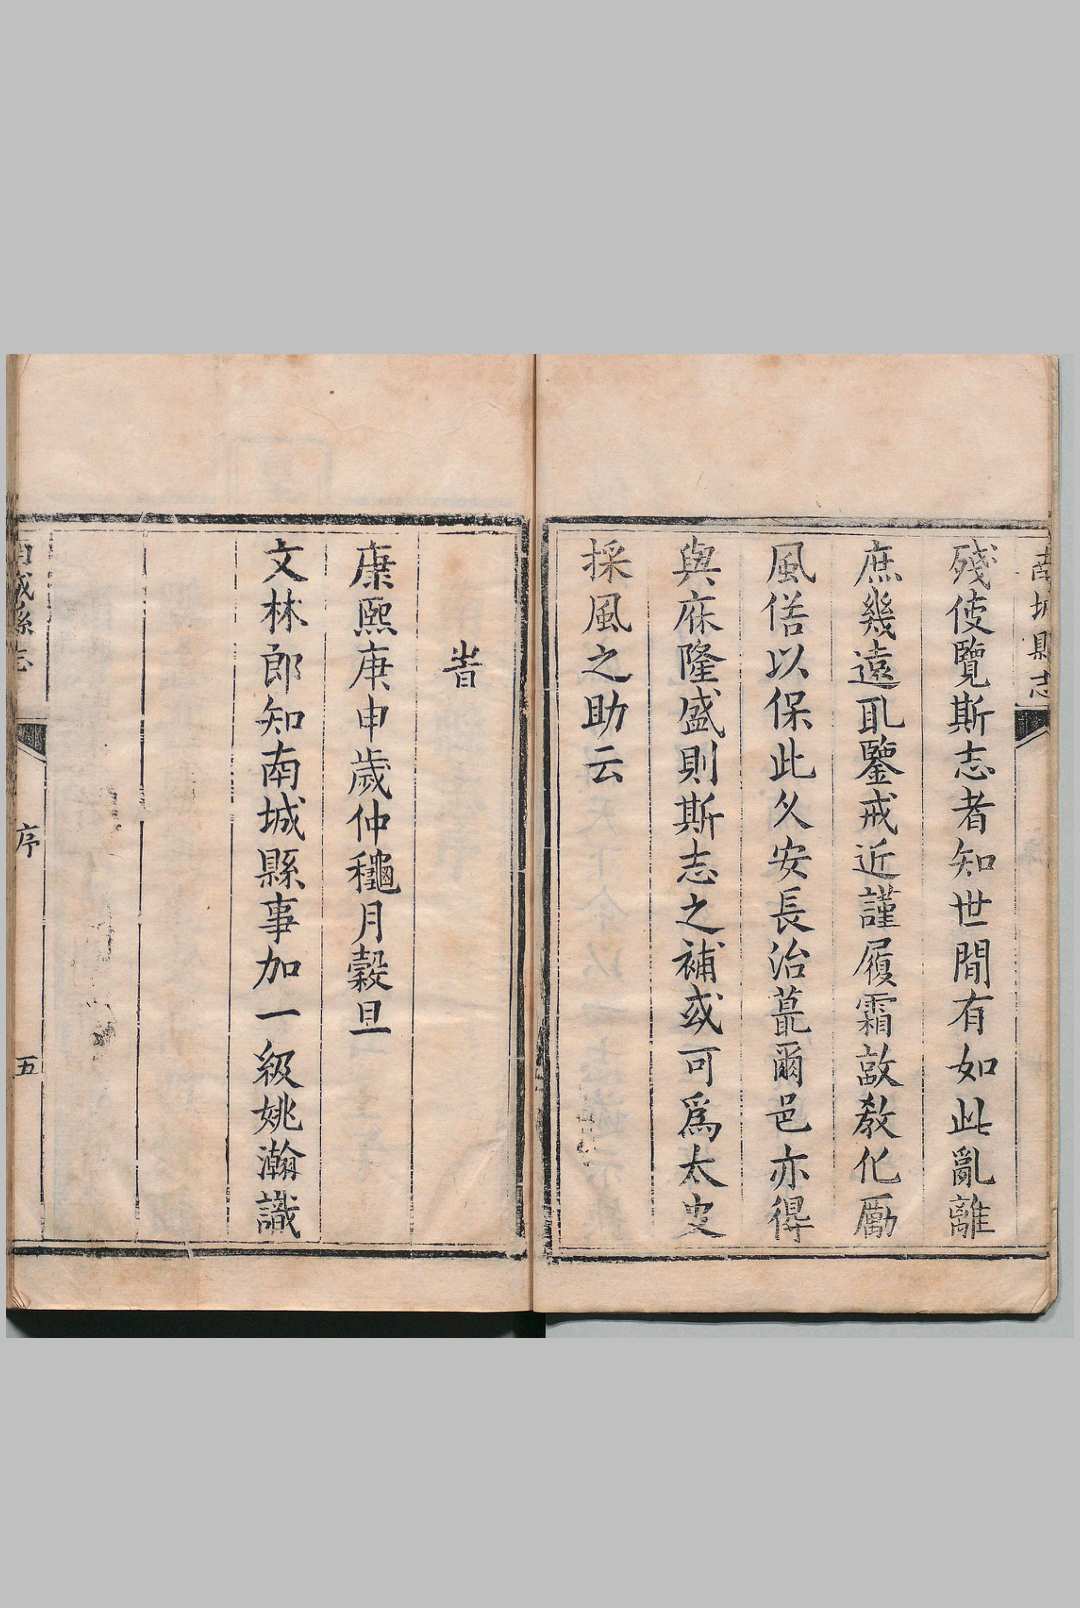 南城縣志
殘使覽斯志者知世間有如此亂離
庶幾遠耴鑒戒近謹履霜敦教化勵
風俗以保此久安長治蕞爾邑亦得
與庥隆盛則斯志之補或可爲太史
採風之助云
旹
康熙庚申歲仲穐月穀旦
文林郎知南城縣事加一級姚瀚識
南城縣志
序
五